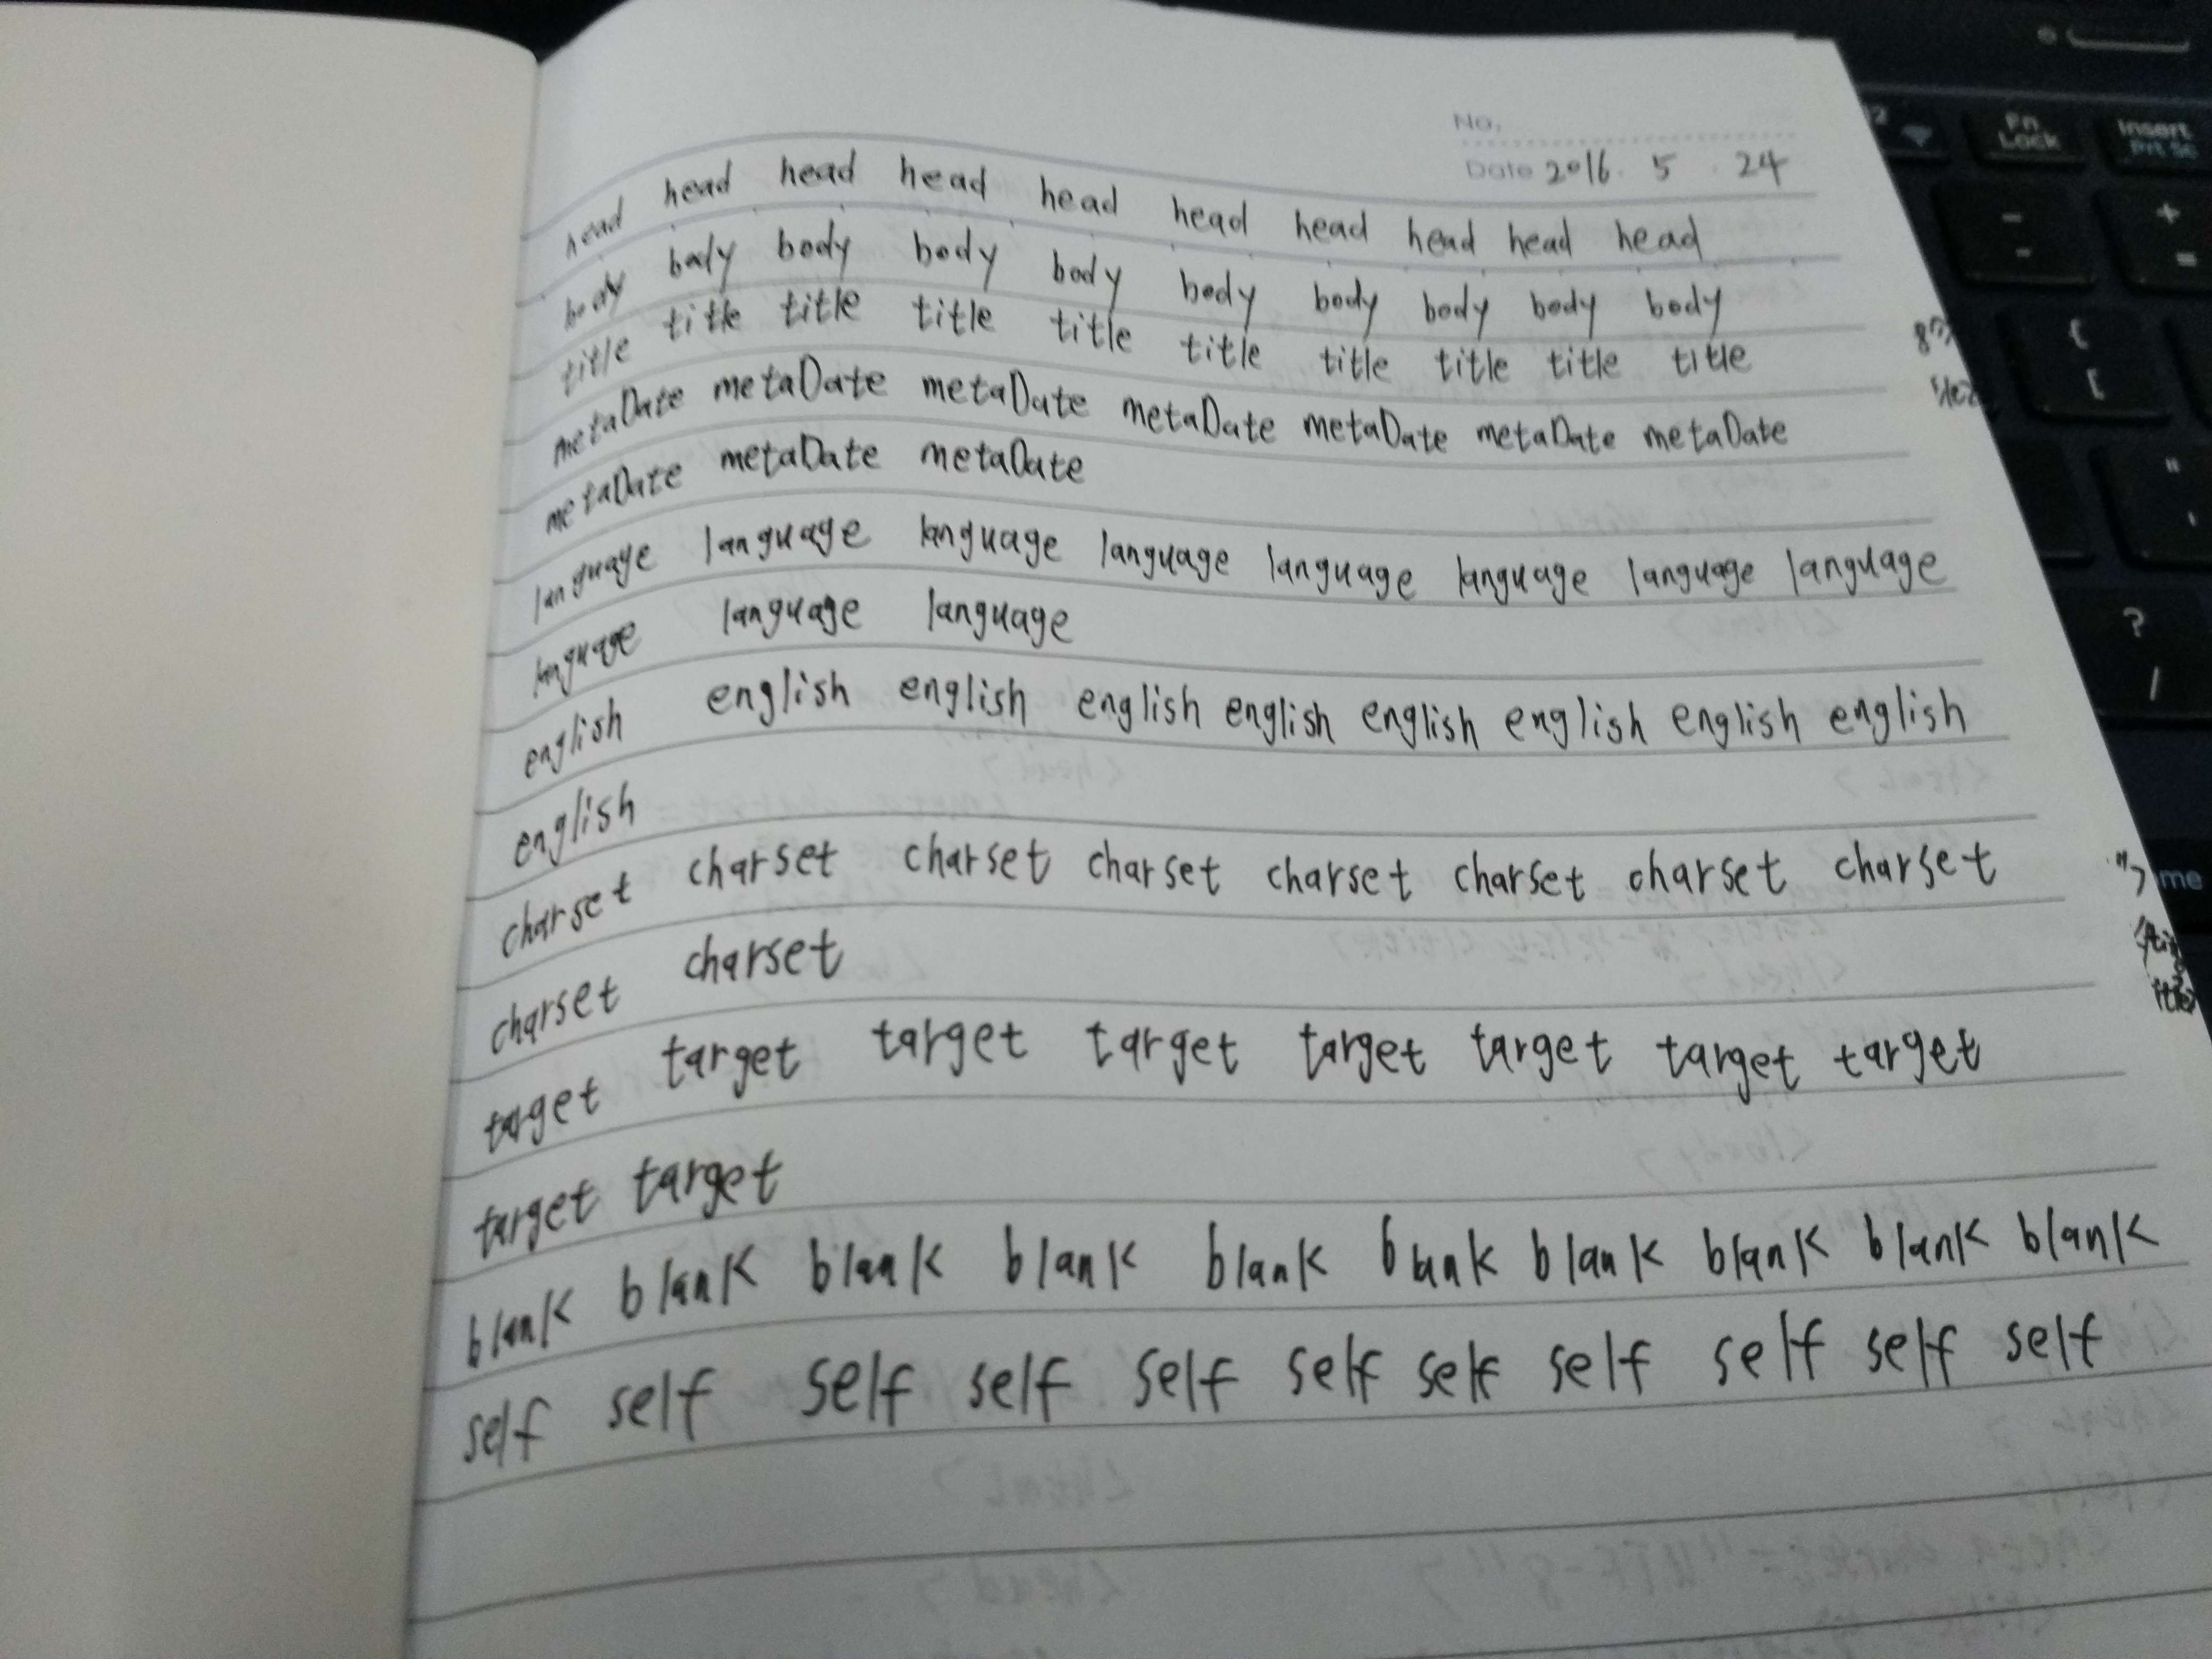 No.
Date 2016. 5 . 24
head head head head head head head head head head
body body body body body body body body body body
title title title title title title title title title title
metaDate metaDate metaDate metaDate metaDate metaDate metaDate
metaDate metaDate metaDate
language language language language language language language language
language language language
english english english english english english english english english
english
charset charset charset charset charset charset charset charset
charset charset
target target target target target target target target
target target
blank blank blank blank blank blank blank blank blank blank
self self self self self self self self self self self
Fn
Lock
Insert
Prt Sc
- +
- =
{
[
"
'
?
/
">
me